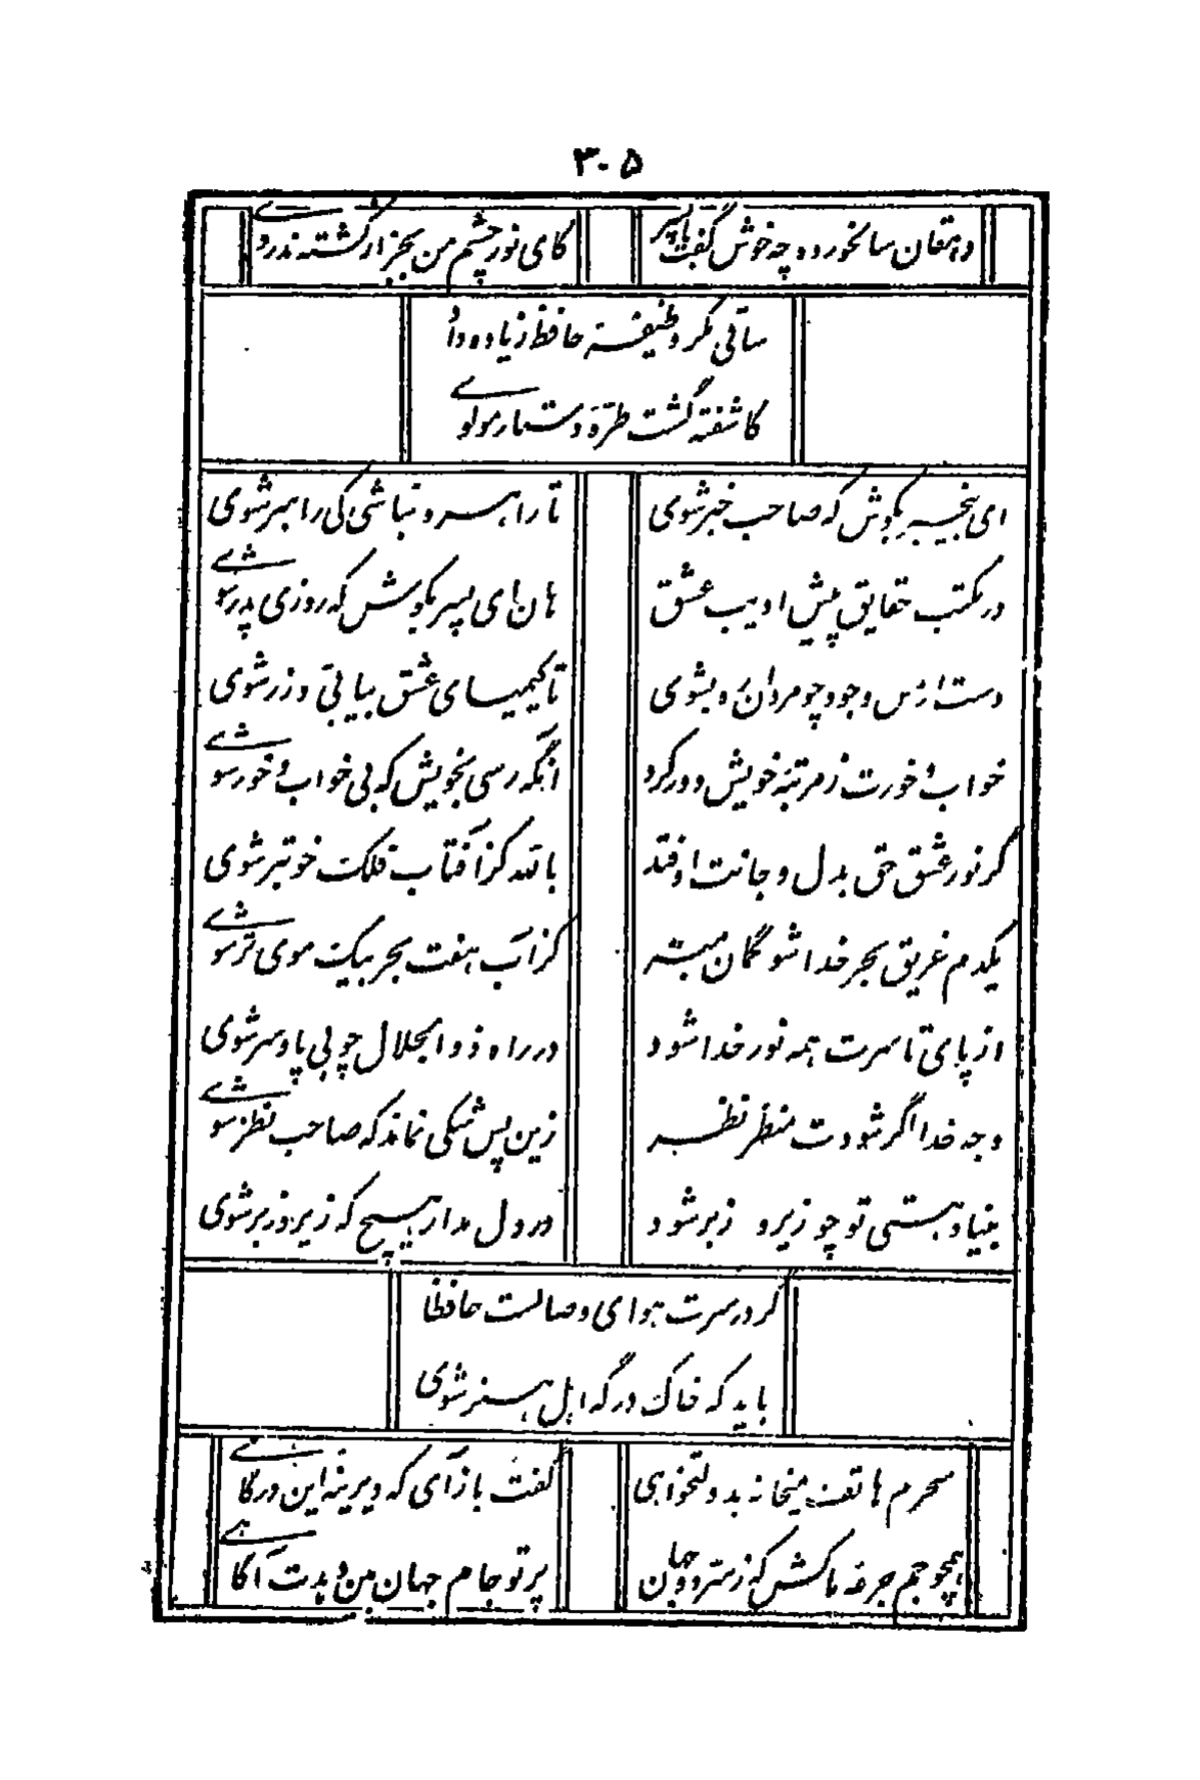 ۳۰۵
دهقان سالخورده چه خوش گفت با پسر
کای نور چشم من بجز از کشته ندروی
ساقی مگر وظیفهٔ حافظ زیاده داد
کاشفته گشت طرّهٔ دستار مولوی
ای بیخبر بکوش که صاحب خبر شوی
تا راهرو نباشی کی راهبر شوی
در مکتب حقایق پیش ادیب عشق
هان ای پسر بکوش که روزی پدر شوی
دست از مس وجود چو مردان ره بشوی
تا کیمیای عشق بیابی و زر شوی
خواب و خورت ز مرتبهٔ خویش دور کرد
آنگه رسی بخویش که بی خواب و خور شوی
گر نور عشق حق بدل و جانت اوفتد
بالله کز آفتاب فلک خوبتر شوی
یکدم غریق بحر خدا شو گمان مبر
کز آب هفت بحر بیک موی تر شوی
از پای تا سرت همه نور خدا شود
در راه ذوالجلال چو بی پا و سر شوی
وجه خدا اگر شودت منظر نظر
زین پس شکی نماند که صاحب نظر شوی
بنیاد هستی تو چو زیر و زبر شود
در دل مدار هیچ که زیر و زبر شوی
گر در سرت هوای وصالست حافظا
باید که خاک درگه اهل هنر شوی
سحرم هاتف میخانه بدولتخواهی
گفت بازآی که دیرینه این درگاهی
همچو جم جرعهٔ ما کش که ز سر دو جهان
پرتو جام جهان بین دهدت آگاهی